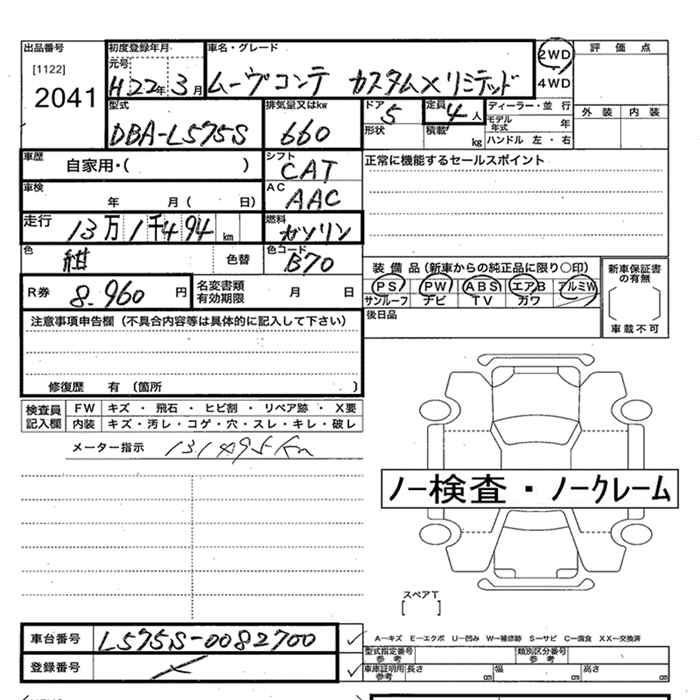 出品番号
[1122]
2041
初度登録年月
元号
H22年3月
車名・グレード
ムーヴコンテ カスタムXリミテッド
2WD
4WD
評価点
外装 内装
型式
DBA-L575S
排気量又はkw
660
ドア
5
形状
定員
4人
積載 kg
ディーラー・並行
モデル年式 年
ハンドル 左・右
車歴
自家用・( )
シフト
CAT
正常に機能するセールスポイント
車検
年 月( 日)
AC
AAC
走行
13万1千494km
燃料
ガソリン
色
紺
色替
色コード
B70
装備品(新車からの純正品に限り○印)
PS PW ABS エアB アルミW
サンルーフ ナビ TV カワ
新車保証書の有無
車載不可
R券 8.960円
名変書類有効期限 月 日
後日品
注意事項申告欄(不具合内容等は具体的に記入して下さい)
修復歴 有(箇所 )
検査員記入欄
FW キズ・飛石・ヒビ割・リペア跡・X要
内装 キズ・汚レ・コゲ・穴・スレ・キレ・破レ
メーター指示 131495km
ノー検査・ノークレーム
スペアT
[ ]
車台番号 L575S-0082700
登録番号
A-キズ E-エクボ U-凹み W-補修跡 S-サビ C-腐食 XX-交換済
型式指定番号 参考
類別区分番号 参考
車庫証明用 参考 長さ cm 幅 cm 高さ cm